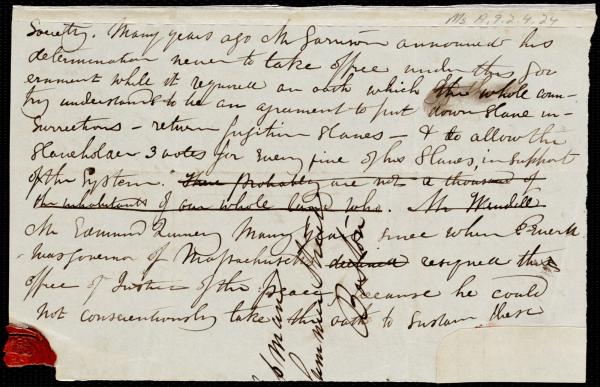 Ms A.9.2.4.24
Society. Many years ago Mr Garrison announced his
determination never to take office under this Gov
ernment while it required an oath which the whole coun-
try understands to be an agreement to put down Slave in-
surrections — return fugitive Slaves — & to allow the
Slaveholder 3 votes for every five of his Slaves, in support
of the System. There probably are not a thousand of
the inhabitants of our whole land who. Mr Wendell
Mr Edmund Quincy Many years since when
was governor of Massachusetts declined resigned the
office of Justice of the peace because he could
not conscientiously take the oath to sustain these
Chapman
Summer Street
Boston